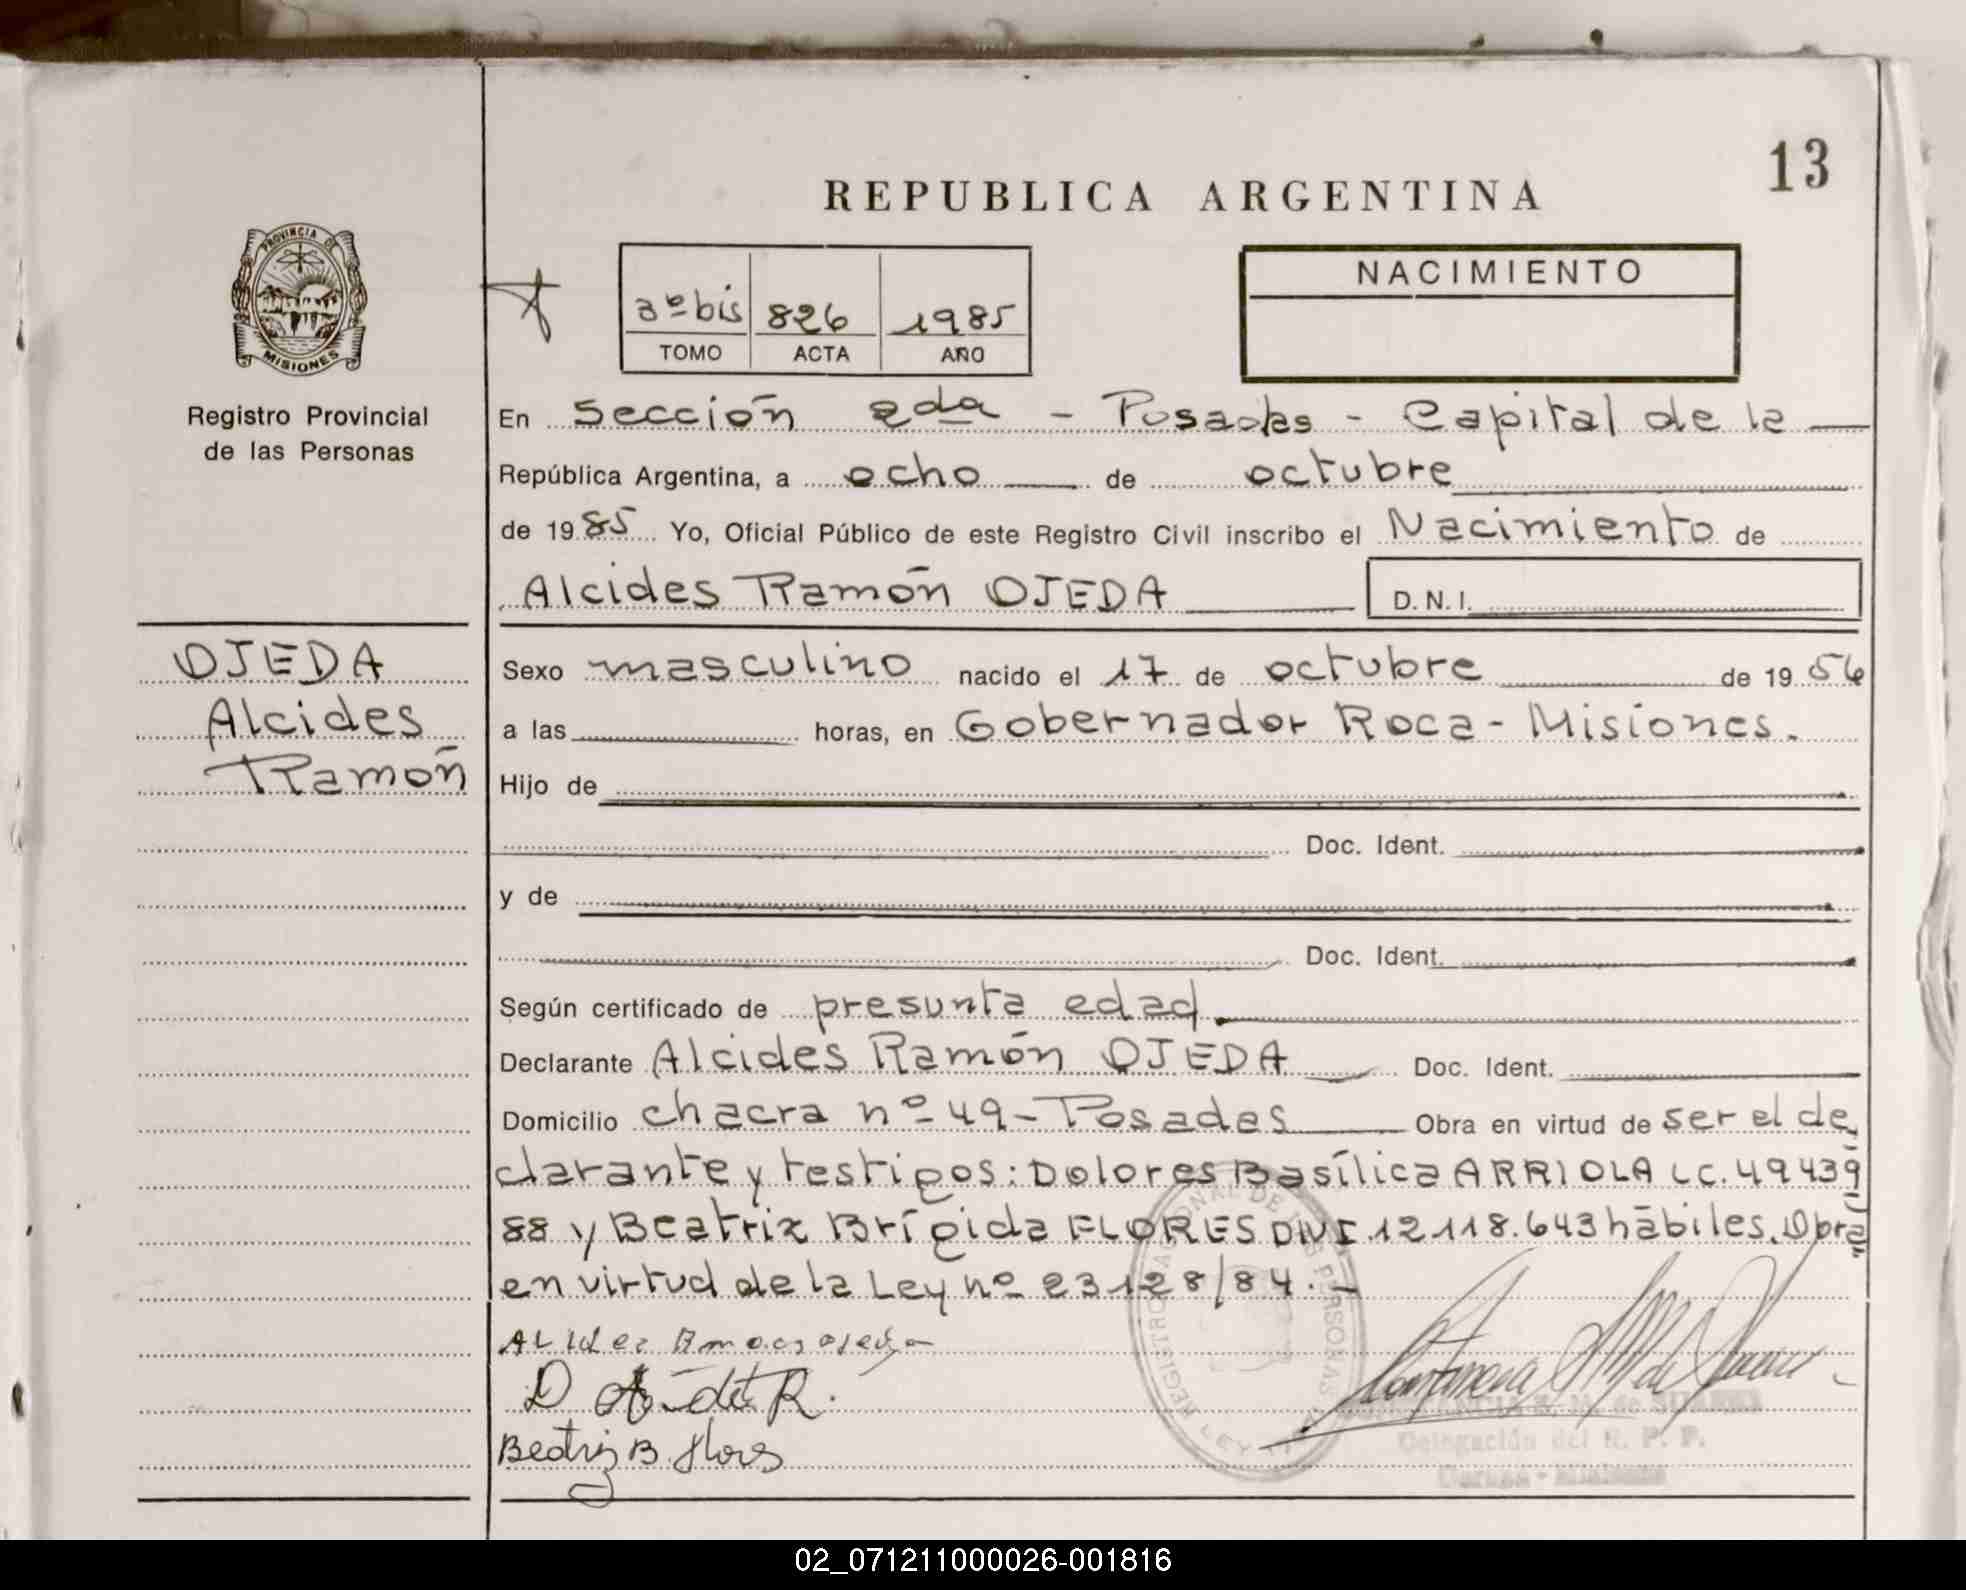 13
REPUBLICA ARGENTINA
PROVINCIA DE
MISIONES
Registro Provincial
de las Personas
NACIMIENTO
3º bis 826 1985
TOMO ACTA AÑO
En Sección 2da - Posadas - Capital de la
República Argentina, a ocho de octubre
de 1985 Yo, Oficial Público de este Registro Civil inscribo el Nacimiento de
Alcides Ramón OJEDA D.N.I.
OJEDA
Alcides
Ramón
Sexo masculino nacido el 17 de octubre de 1956
a las horas, en Gobernador Roca - Misiones.
Hijo de
Doc. Ident.
y de
Doc. Ident.
Según certificado de presunta edad
Declarante Alcides Ramón OJEDA Doc. Ident.
Domicilio chacra nº 49 - Posadas Obra en virtud de ser el de
clarante y testigos: Dolores Basílica ARRIOLA LC. 49439
88 y Beatriz Brígida FLORES DNI. 12.118.643 hábiles. Obra
en virtud de la Ley nº 23128/84. -
Beatriz B. Flores
Delegación del R. P. P.
02_071211000026-001816